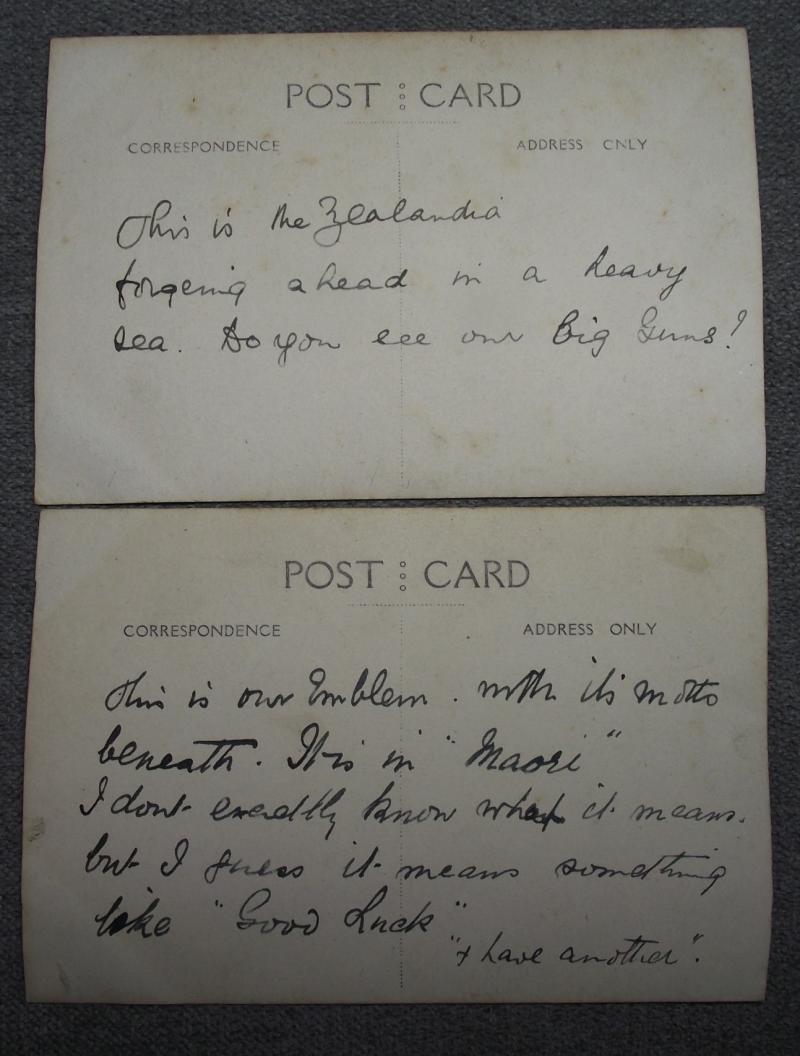 POST CARD
CORRESPONDENCE
ADDRESS ONLY
This is the Zealandia
forgeing ahead in a heavy
sea. Do you see our Big Guns!
POST CARD
CORRESPONDENCE
ADDRESS ONLY
This is our Emblem. with its motto
beneath. It is in "Maori"
I dont exactly know what it means.
but I guess it means something
like "Good Luck"
"& have another".